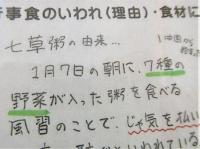 行事食のいわれ(理由)・食材に
七草粥の由来…
中国から
1月7日の朝に、7種の
野菜が入った粥を食べる
風習のことで、じゃ気を払い
いわれている